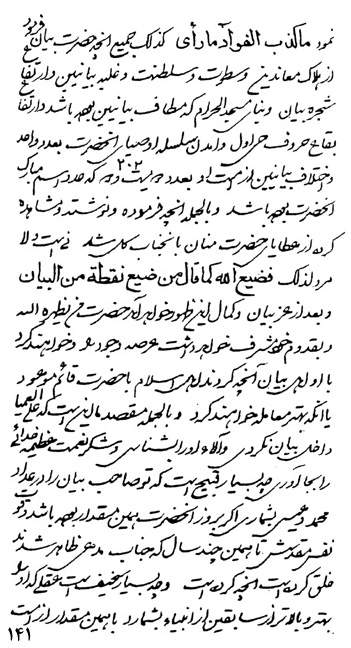 نمود ماکذب الفوآد مارأی کذلک جمیع آنچه حضرت بیان فرمود
از هلاک معاندین و سطوت و سلطنت و غلبه بیانیین و ارتفاع
شجره بیان و بنای مسجد الحرام که مطاف بیانیین بوده باشد و ارتفاع
بقاع حروف حی اول و آمدن سلسله اوصیاء آنحضرت بعدد واحد
و اختلاف بیانیین از امت او بعدد ۲۰۲ که عدد اسم مبارک
آنحضرت بوده باشد و بالجمله آنچه فرموده و نوشته و شاهده
کرده از عطایای حضرت منان بانجناب کل شد نی است و لا
مرد لذلک فضیع الله کما قال من ضیع نقطة من البیان
و بعد از عز بیان و کمال این ظهور خواهد آمد حضرت من یظهره الله
و بقدوم خود مشرف خواهد داشت عرصه وجود را و خواهند کرد
با او اهل بیان آنچه کردند اهل اسلام با حضرت قائم موعود
یا آنکه بهتر معامله خواهند کرد و بالجمله مقصد ما این است که علی العمیا
داخل بیان نگردی و آلاء او را بشناسی و شکر نعمت عظیمه خدائی
را بجا آوری چه بسیار قبیح است که تو صاحب بیان را در عداد
محمد و عیسی بشماری اگر بروز آنحضرت بهمین مقدار بوده باشد و قوت
نفس مقدسش تا همین چند سال که جناب مدعی ظاهر شدند
خلق کرده است آنچه کرده است و چه بسیار سخیف است عقلی که او را
بهتر و بالاتر از سابقین از انبیاء بشمارد با همین مقدار از امت
۱۴۱